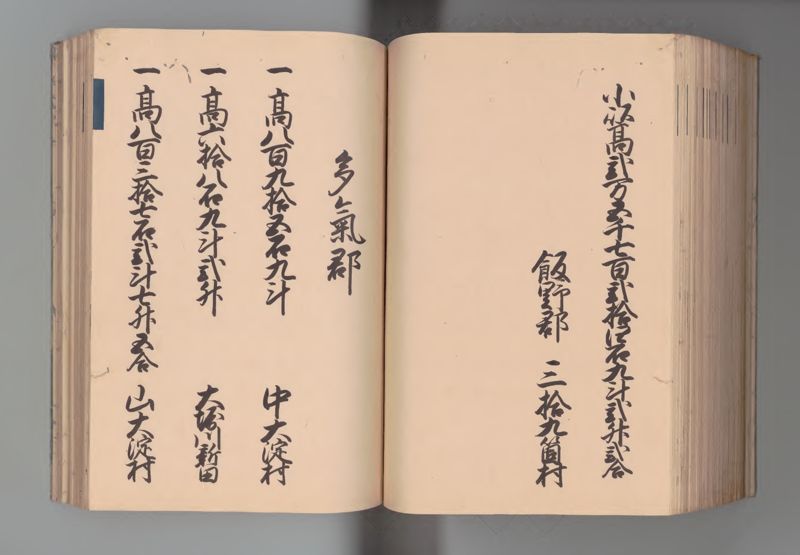 小以高弐万五千七百弐拾
石九斗弐升弐合
飯野郡 三拾九箇村
多気郡
一高八百九拾五石九斗 中大淀村
一高六拾八石九斗弐升 大堀川新田
一高八百三拾七石弐斗七升五合 山大淀村